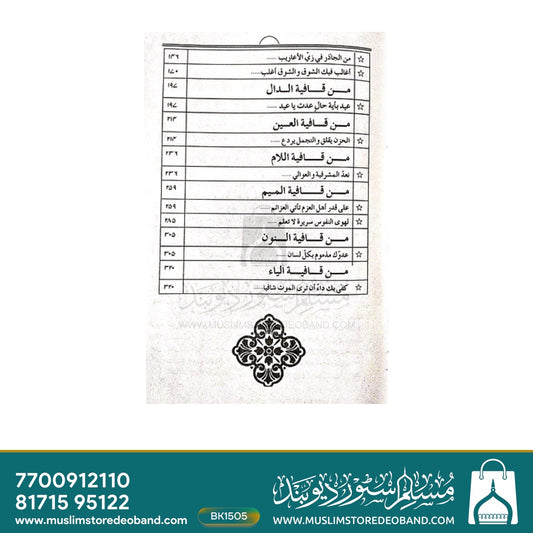 ☆ من الجآذر في زيّ الأعاريب ...... ١٤٦
☆ أغالب فيك الشوق والشوق أغلب ...... ١٧٠
من قافية الدال ١٩٧
☆ عيد بأية حال عدت يا عيد ...... ١٩٧
من قافية العين ٢١٣
☆ الحزن يقلق والتجمل يردع ...... ٢١٣
من قافية اللام ٢٣٦
☆ نعدّ المشرفية والعوالي ...... ٢٣٦
من قافية الميم ٢٥٩
☆ على قدر أهل العزم تأتي العزائم ...... ٢٥٩
☆ لهوى النفوس سريرة لا تعلم ...... ٢٨٥
من قافية النون ٣٠٥
☆ عدوّك مذموم بكلّ لسان ...... ٣٠٥
من قافية الياء ٣٢٠
☆ كفى بك داءً أن ترى الموت شافيا ...... ٣٢٠
مسلم سٹور دیوبند
WWW.MUSLIMSTOREDEOBAND.COM
7700912110
81715 95122
www.muslimstoredeoband.com
BK1505
مسلم سٹور دیوبند
WWW.MUSLIMSTOREDEOBAND.COM